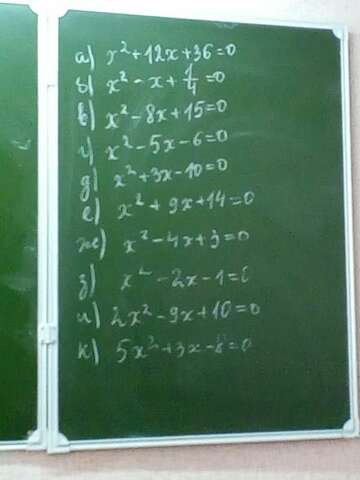 а) x² + 12x + 36 = 0
б) x² - x + 1/4 = 0
в) x² - 8x + 15 = 0
г) x² - 5x - 6 = 0
д) x² + 3x - 10 = 0
е) x² + 9x + 14 = 0
ж) x² - 4x + 3 = 0
з) x² - 2x - 1 = 0
и) 2x² - 9x + 10 = 0
к) 5x² + 3x - 8 = 0